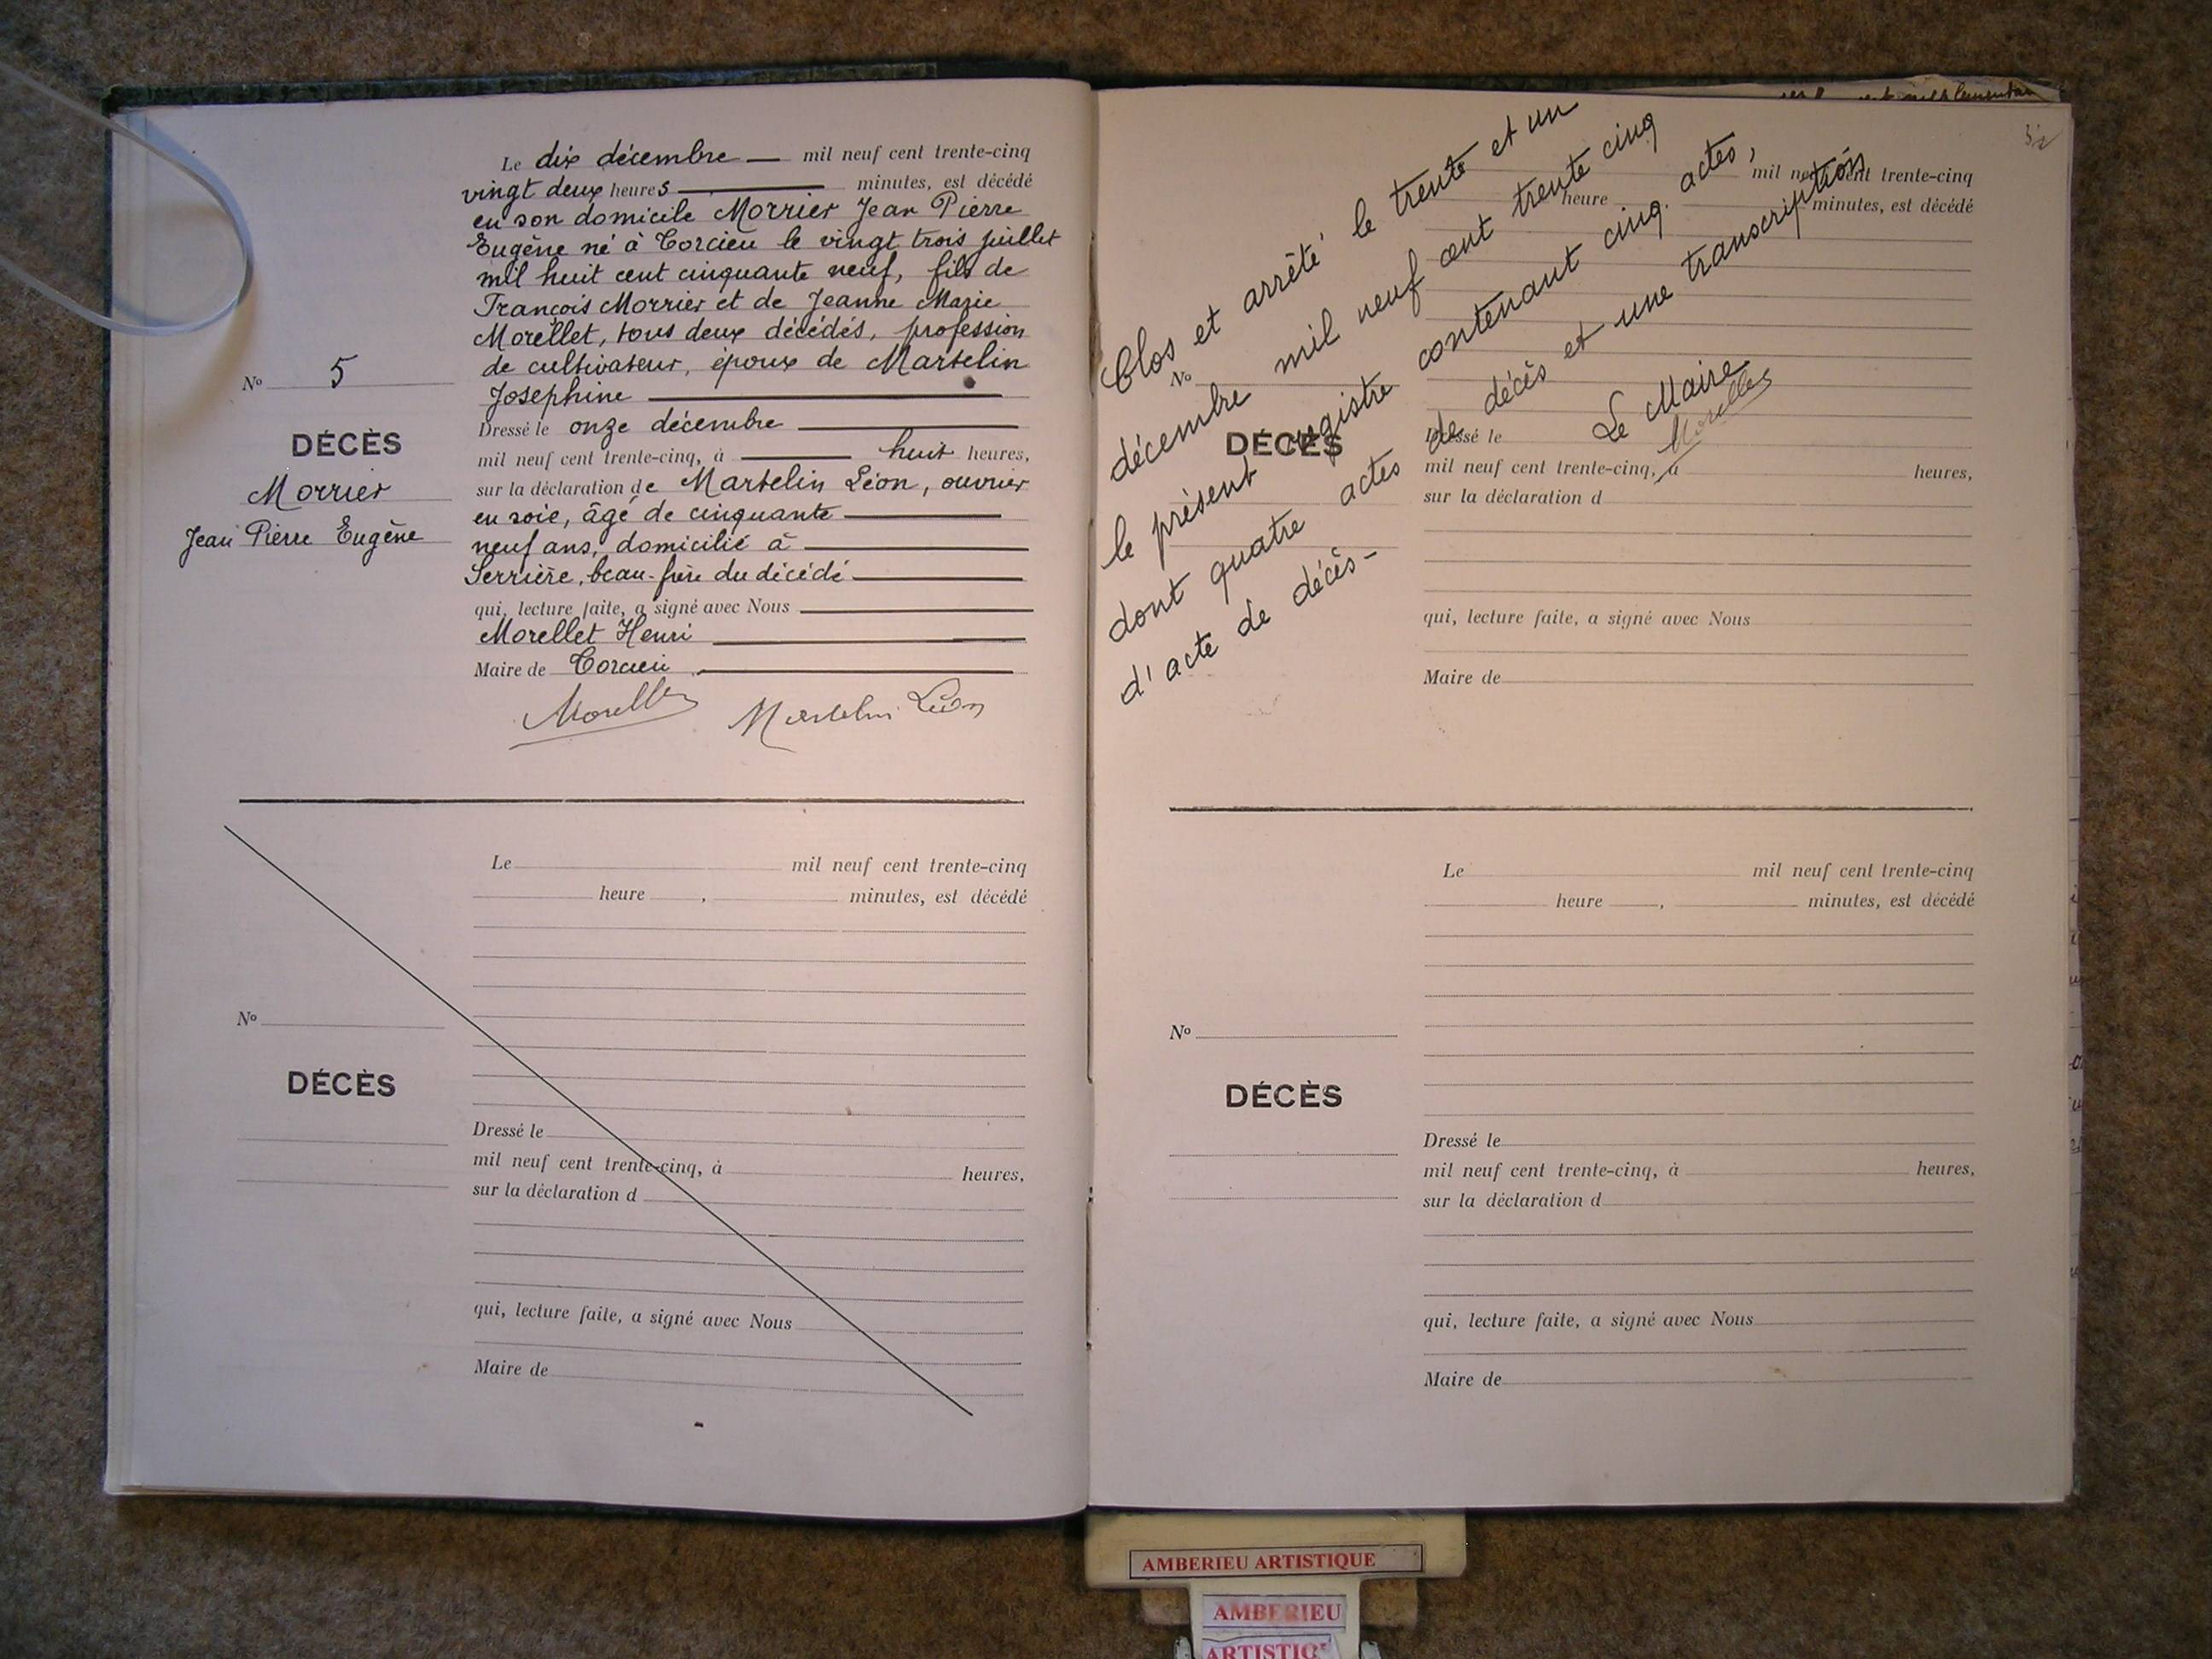 Le dix décembre mil neuf cent trente-cinq
vingt deux heures minutes, est décédé
en son domicile Morrier Jean Pierre
Eugène né à Torcieu le vingt trois juillet
mil huit cent cinquante neuf, fils de
François Morrier et de Jeanne Marie
Morellet, tous deux décédés, profession
de cultivateur, époux de Martelin
Josephine
No 5
DÉCÈS
Morrier
Jean Pierre Eugène
Dressé le onze décembre
mil neuf cent trente-cinq, à huit heures,
sur la déclaration de Martelin Léon, ouvrier
en soie, âgé de cinquante
neuf ans, domicilié à
Serrière, beau-frère du décédé
qui, lecture faite, a signé avec Nous
Morellet Henri
Maire de Torcieu
Morellet Martelin Léon
Le mil neuf cent trente-cinq
heure , minutes, est décédé
No
DÉCÈS
Dressé le
mil neuf cent trente-cinq, à heures,
sur la déclaration d
qui, lecture faite, a signé avec Nous
Maire de
Clos et arrêté le trente et un
décembre mil neuf cent trente cinq
le présent registre contenant cinq actes,
dont quatre actes de décès et une transcription
d'acte de décès-
Le Maire
Morellet
mil neuf cent trente-cinq
heure minutes, est décédé
No
DÉCÈS
Dressé le
mil neuf cent trente-cinq, à heures,
sur la déclaration d
qui, lecture faite, a signé avec Nous
Maire de
Le mil neuf cent trente-cinq
heure , minutes, est décédé
No
DÉCÈS
Dressé le
mil neuf cent trente-cinq, à heures,
sur la déclaration d
qui, lecture faite, a signé avec Nous
Maire de
AMBERIEU ARTISTIQUE
AMBERIEU